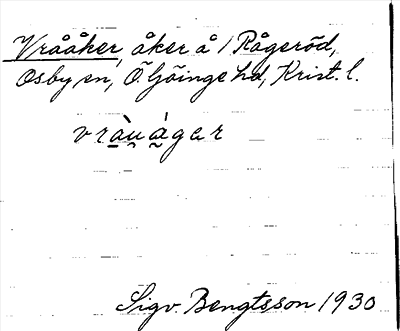 Vrååker, åker å / Rågeröd,
Osby sn, Ö Göinge hd, Krist. l.
vràu̯ágar
Sigv. Bengtsson 1930